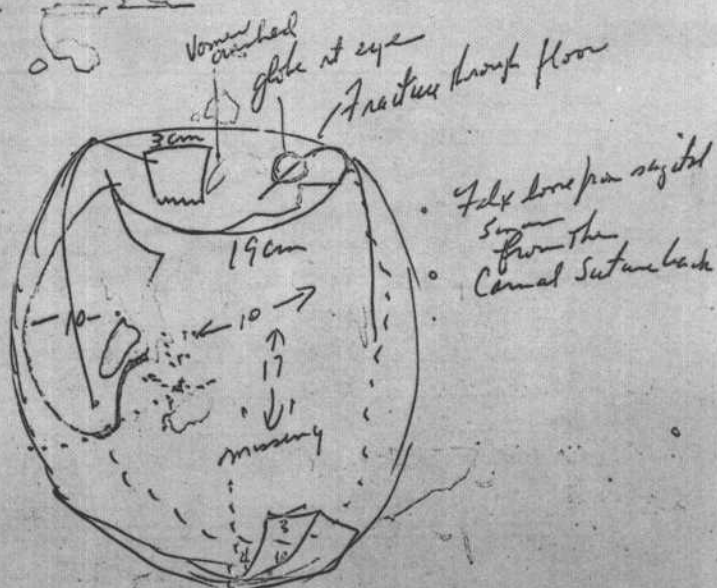 Vomer
crushed
globe rt eye
Fracture through floor
3 cm
19 cm
Falx loose from sagittal
sinus
from the
Coronal suture back
10
10
17
missing
3
4
10